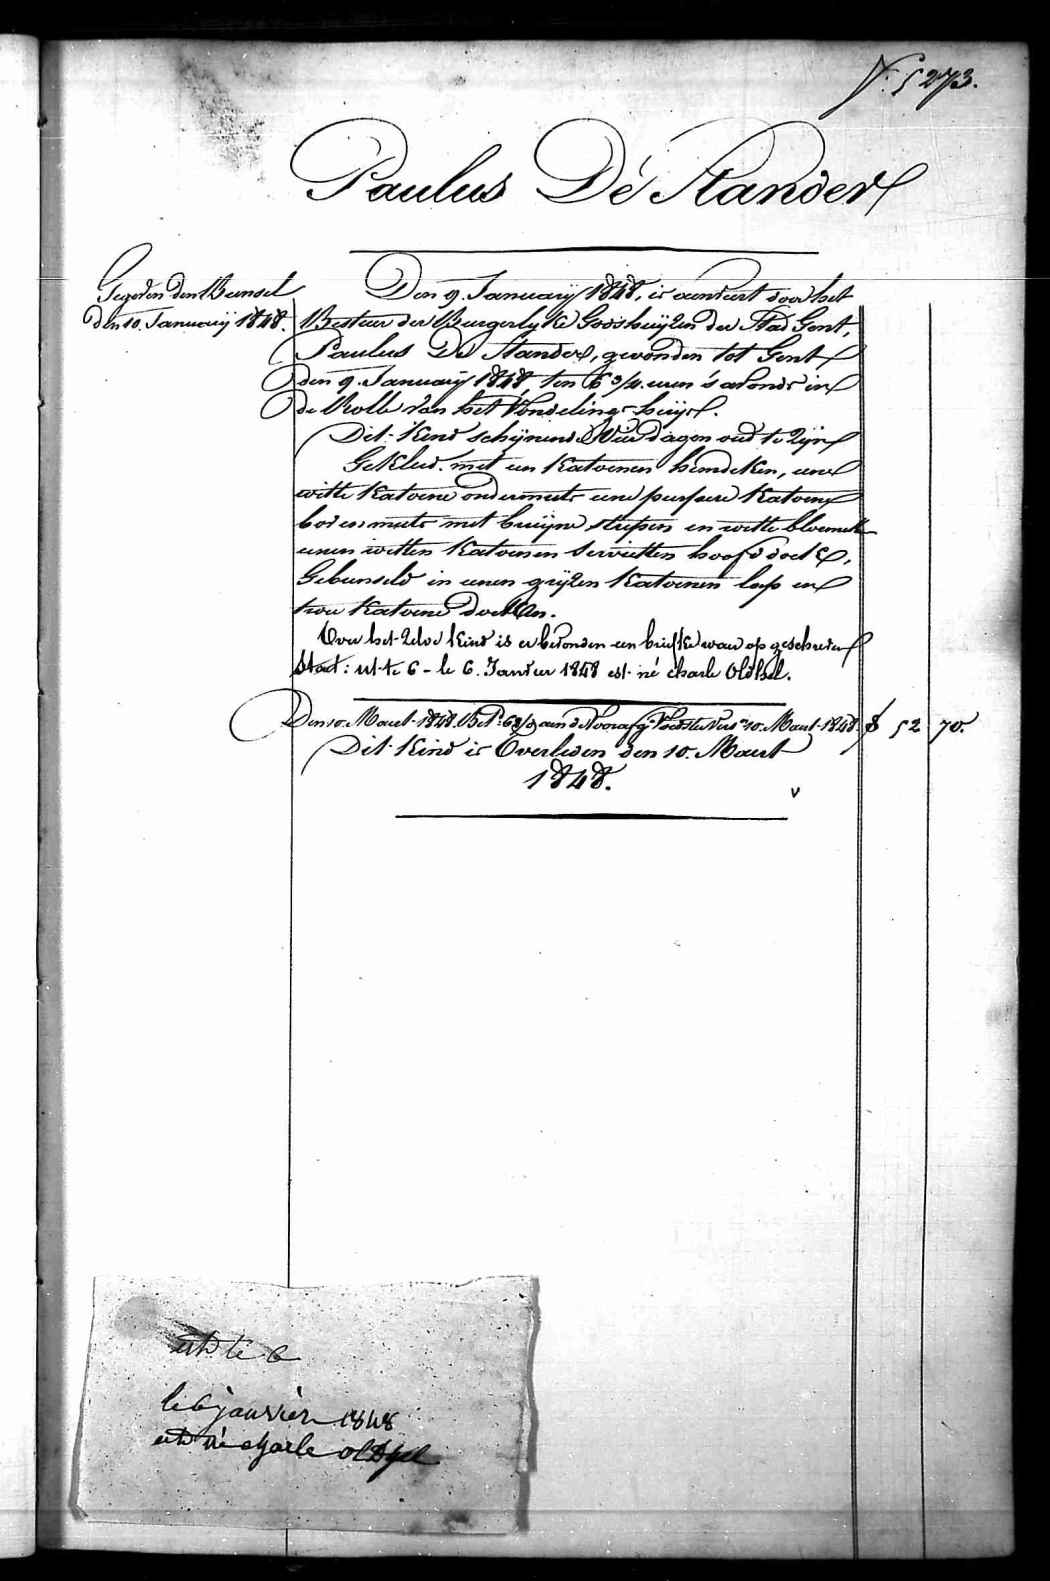 N. 5273.
Paulus De Stander
Gegeven den Bunsel
den 10. Januarij 1848.
Den 9. Januarij 1848, is aenveert door het
Bestuer der Burgerlyke Godshuijzen der Stad Gent,
Paulus De Stander, gevonden tot Gent
den 9. Januarij 1848, ten 6 3/4 uren 's avonds in
de Rolle van het Vondelings-huijs.
Dit Kind schijnende Vier dagen oud te Zijn
Gekleed met een Katoenen hemdeken, eene
witte Katoene ondermuts eene purpere Katoene
bovenmuts met bruijne strepen en witte bloemen
eenen witten Katoenen servietten hoofddoek,
Gebunseld in eenen grijzen Katoenen lap en
twee Katoene doeken.
Over het Zelve Kind is er bevonden een briefke waer op geschreven
Staet: est te 6 - le 6. Janvier 1848 est né charle Oldhel.
Den 10. Maert 1848. Bet. 10. Maert 1848. 52 70.
Dit Kind is Overleden den 10. Maert
1848.
v
est te 6
le 6 janvier 1848
est né charle